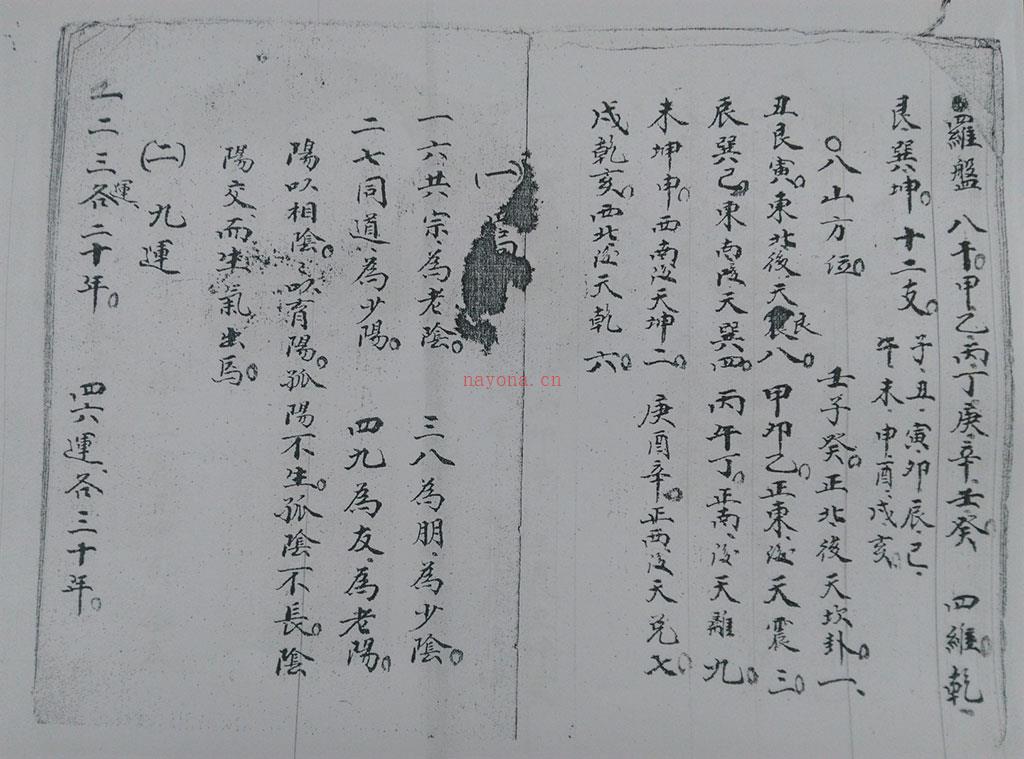 羅盤 八干。甲乙丙丁庚辛壬癸。 四維。乾、
艮、巽、坤。十二支。子、丑、寅、卯、辰、巳、
午、未、申、酉、戌、亥。
○八山方位。 壬子癸。正北、後天坎卦一、
丑艮寅。東北後天艮八。甲卯乙。正東、後天震三。
辰巽巳、東南後天巽四。丙午丁。正南、後天離九。
未坤申。西南後天坤二。庚酉辛。正西、後天兌七。
戌乾亥。西北後天乾六。
(一)
一六共宗、為老陰。 三八為朋、為少陰。
二七同道、為少陽。 四九為友、為老陽。
陽以相陰。以育陽。孤陽不生。孤陰不長。陰
陽交、而生氣出焉。
(二)九運
一二三運、各二十年。 四六運、各三十年。
nayona.cn